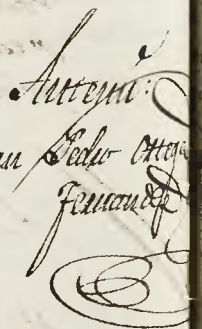 Ante mi:
Pedro Ortega
Fernandez